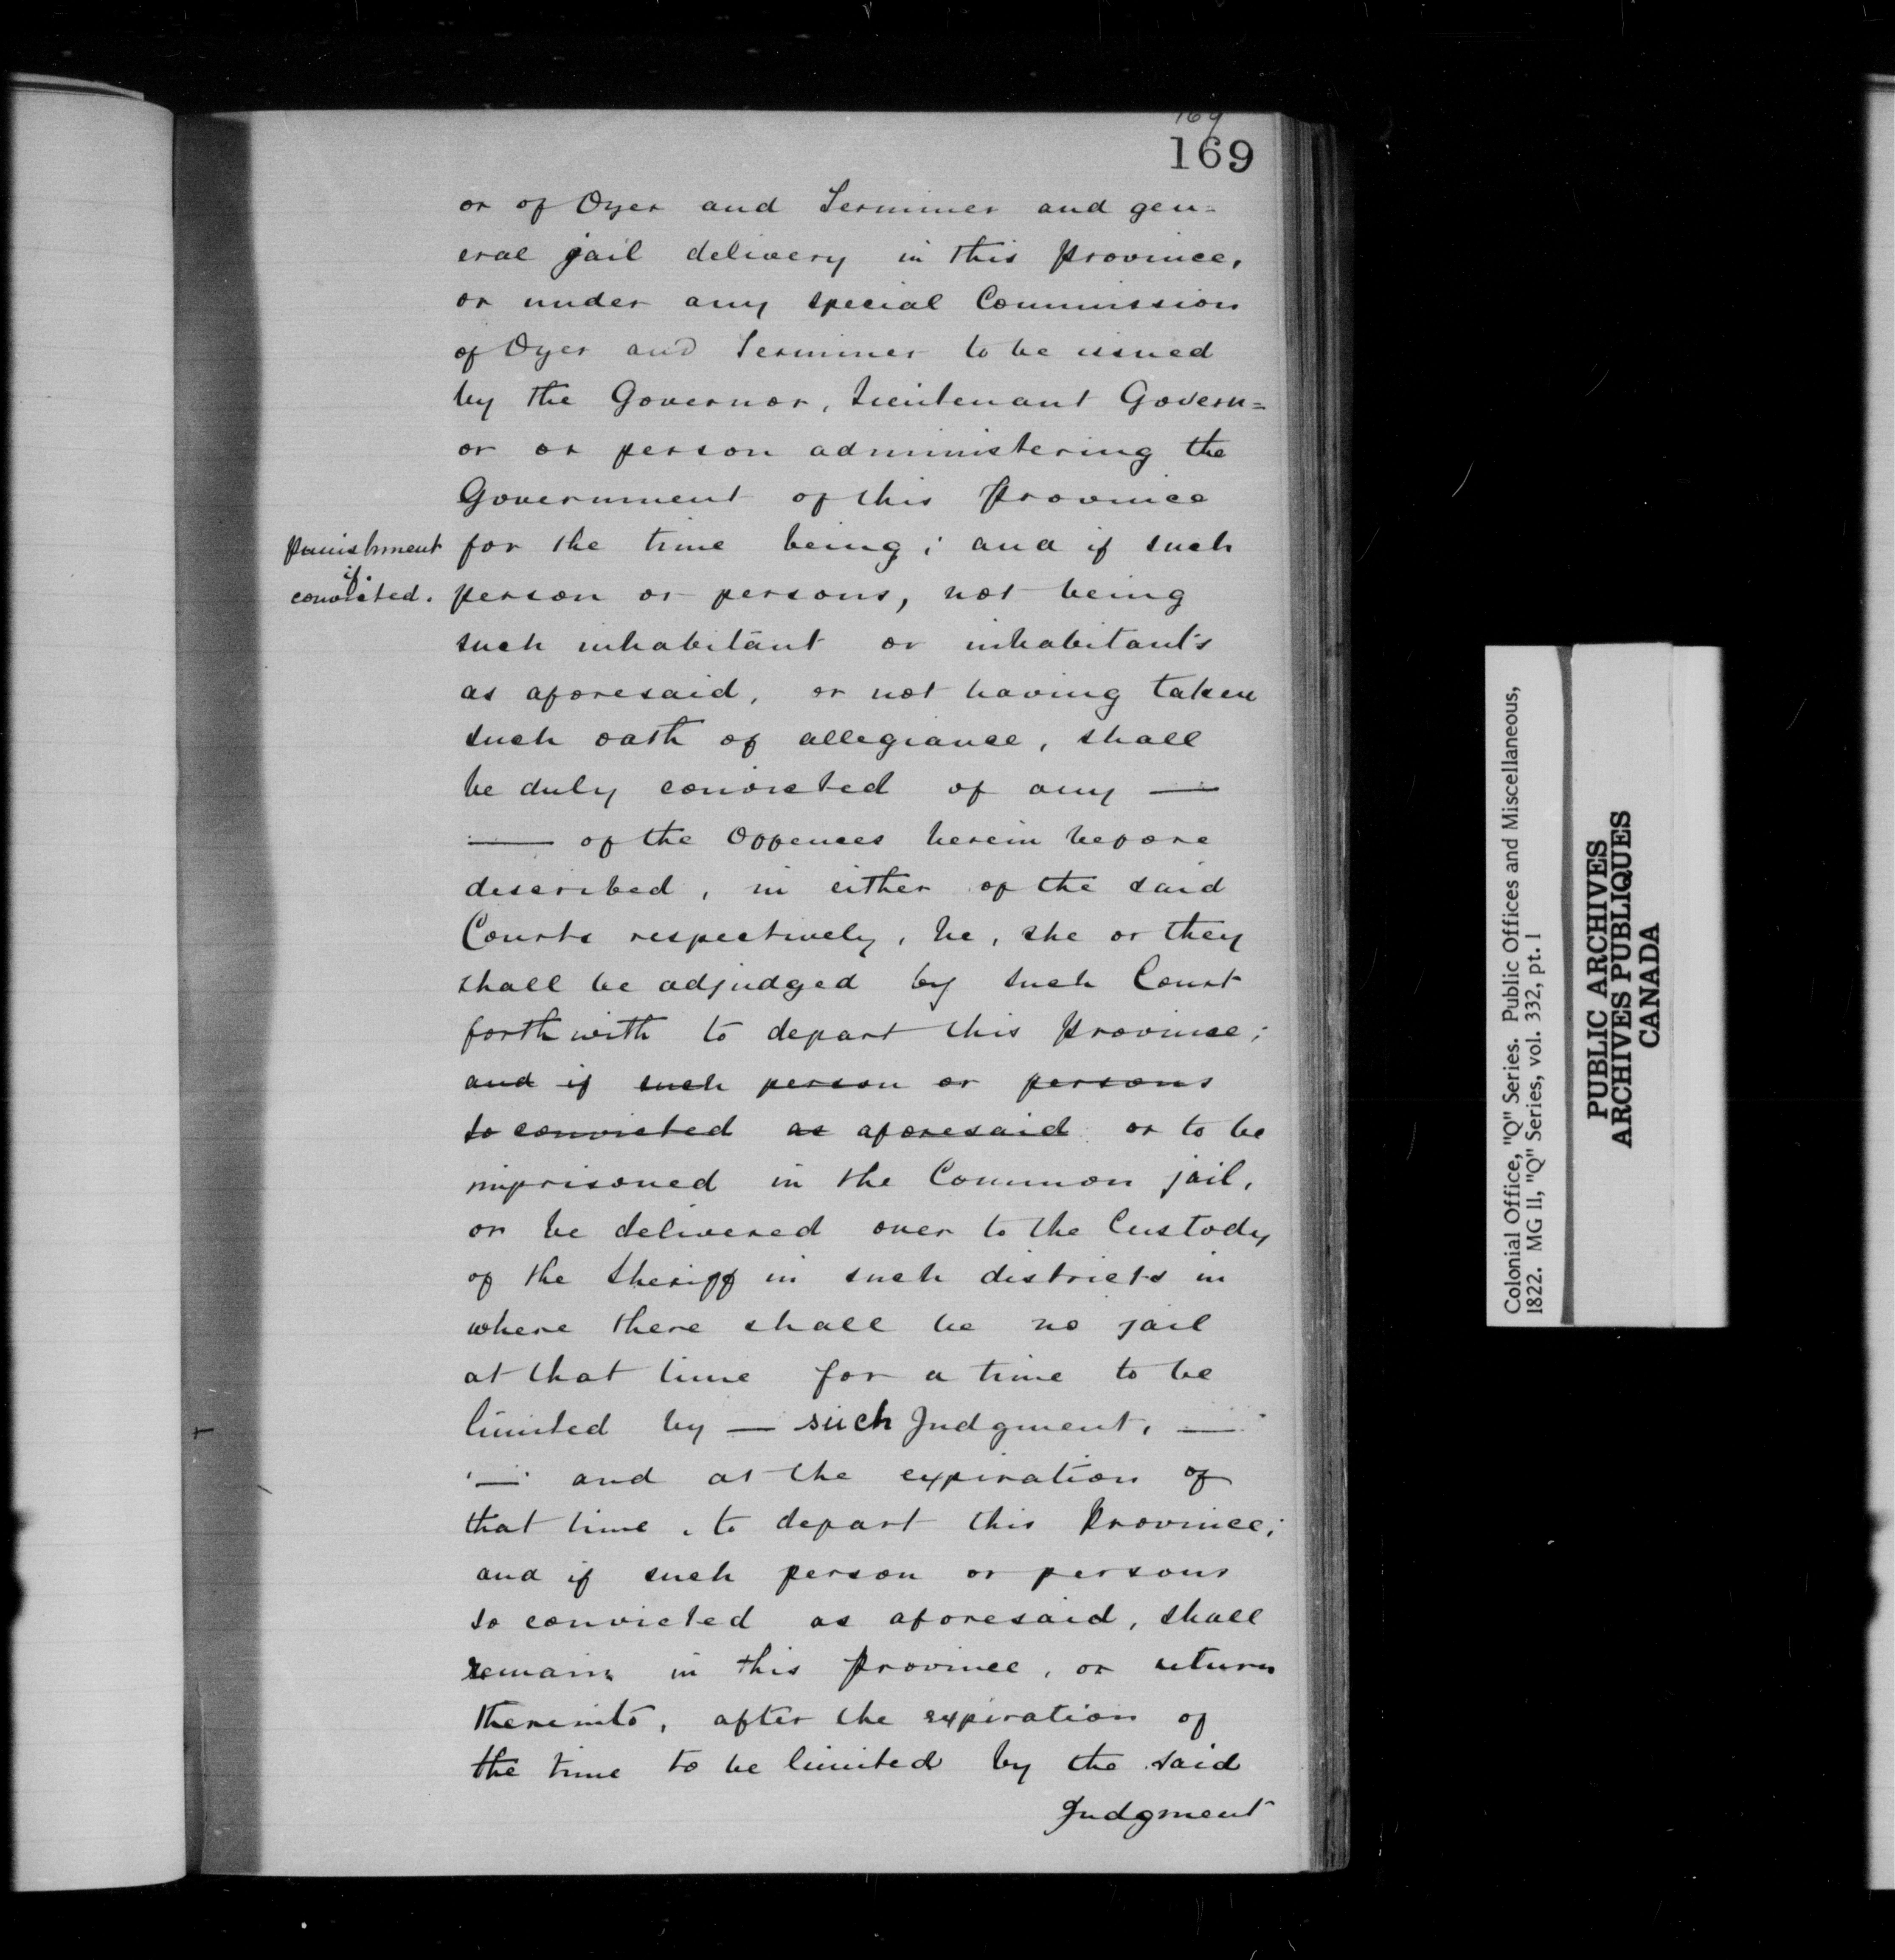 169
169
or of Oyer and Terminer and gen=
eral jail delivery in this province,
or under any special Commission
of Oyer and Terminer to be issued
by the Governor, Lieutenant Govern=
or or person administering the
Government of this Province
Punishment if convicted.
for the time being; and if such
person or persons, not being
such inhabitant or inhabitants
as aforesaid, or not having taken
such oath of allegiance, shall
be duly convicted of any —
— of the Offences herein before
described, in either of the said
Courts respectively, he, she or they
shall be adjudged by such Court
forthwith to depart this Province;
and if such person or persons
so convicted as aforesaid or to be
imprisoned in the Common jail,
or be delivered over to the Custody
of the Sheriff in such districts in
where there shall be no jail
at that time for a time to be
limited by — such Judgment, —
— and at the expiration of
that time, to depart this Province;
and if such person or persons
so convicted as aforesaid, shall
remain in this province, or return
thereinto, after the expiration of
the time to be limited by the said
Judgment
Colonial Office, "Q" Series. Public Offices and Miscellaneous,
1822. MG 11, "Q" Series, vol. 332, pt. 1
PUBLIC ARCHIVES
ARCHIVES PUBLIQUES
CANADA